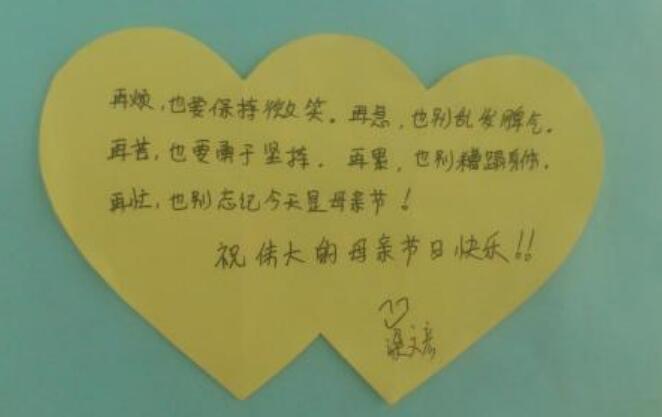 再烦，也要保持微笑。再急，也别乱发脾气。
再苦，也要勇于坚持．再累，也别糟蹋身体．
再忙，也别忘记今天是母亲节！
祝伟大的母亲节日快乐!!
梁文宏